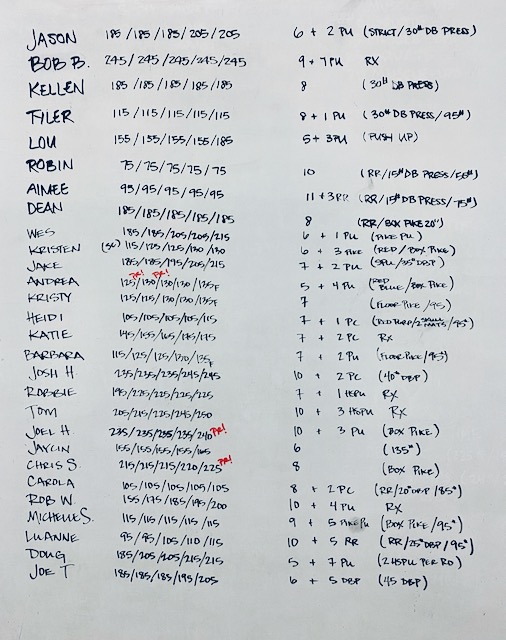 JASON 185/185/185/205/205 6 + 2 PU (STRICT/30# DB PRESS)
BOB B. 245/245/245/245/245 9 + 7PU RX
KELLEN 185/185/185/185/185 8 (30# DB PRESS)
TYLER 115/115/115/115/115 8 + 1 PU (30# DB PRESS/95#)
LOU 155/155/155/155/185 5 + 3PU (PUSH UP)
ROBIN 75/75/75/75/75 10 (RR/15# DB PRESS/55#)
AIMEE 95/95/95/95/95 11 + 3RR (RR/15# DB PRESS/75#)
DEAN 185/185/185/185/185 8 (RR/BOX PIKE 20")
WES 185/185/205/205/215 6 + 1 PU (PIKE PU)
KRISTEN 115/125/125/130/130 6 + 3 PIKE (RED/BOX PIKE)
JAKE 185/185/195/205/215 7 + 2 PU (SPU/35# DBP)
PR! PR!
ANDREA 125/130/130/130/135F 5 + 4 PU (RED BLUE/BOX PIKE)
KRISTY 125/125/130/130/135F 7 (FLOOR PIKE/95)
HEIDI 105/105/105/105/115 7 + 1 PC
KATIE 145/155/165/175/175 7 + 2 PC RX
BARBARA 115/125/125/130/135F 7 + 2 PU (FLOOR PIKE/95#)
JOSH H 235/235/235/245/245 10 + 2 PC (40# DBP)
ROBBIE 195/225/225/225/225 7 + 1 HSPU RX
TOM 205/215/225/245/250 10 + 3 HSPU RX
JOEL H. 235/235/235/235/240 PR! 10 + 3 PU (BOX PIKE)
JAYCIN 155/155/155/155/165 6 (135#)
CHRIS S. 215/215/215/220/225 PR! 8 (BOX PIKE)
CAROLA 105/105/105/105/105 8 + 2 PC (RR/20# DBP/85#)
ROB W. 155/175/185/195/200 10 + 4 PU RX
MICHELLE S. 115/115/115/115/115 9 + 5 PIKE PU (BOX PIKE/95#)
LUANNE 95/95/105/110/115 10 + 5 RR (RR/25# DBP/95#)
DOUG 185/205/205/215/215 5 + 7 PU (2 HSPU PER RD)
JOE T 185/185/185/195/205 6 + 5 DBP (45 DBP)